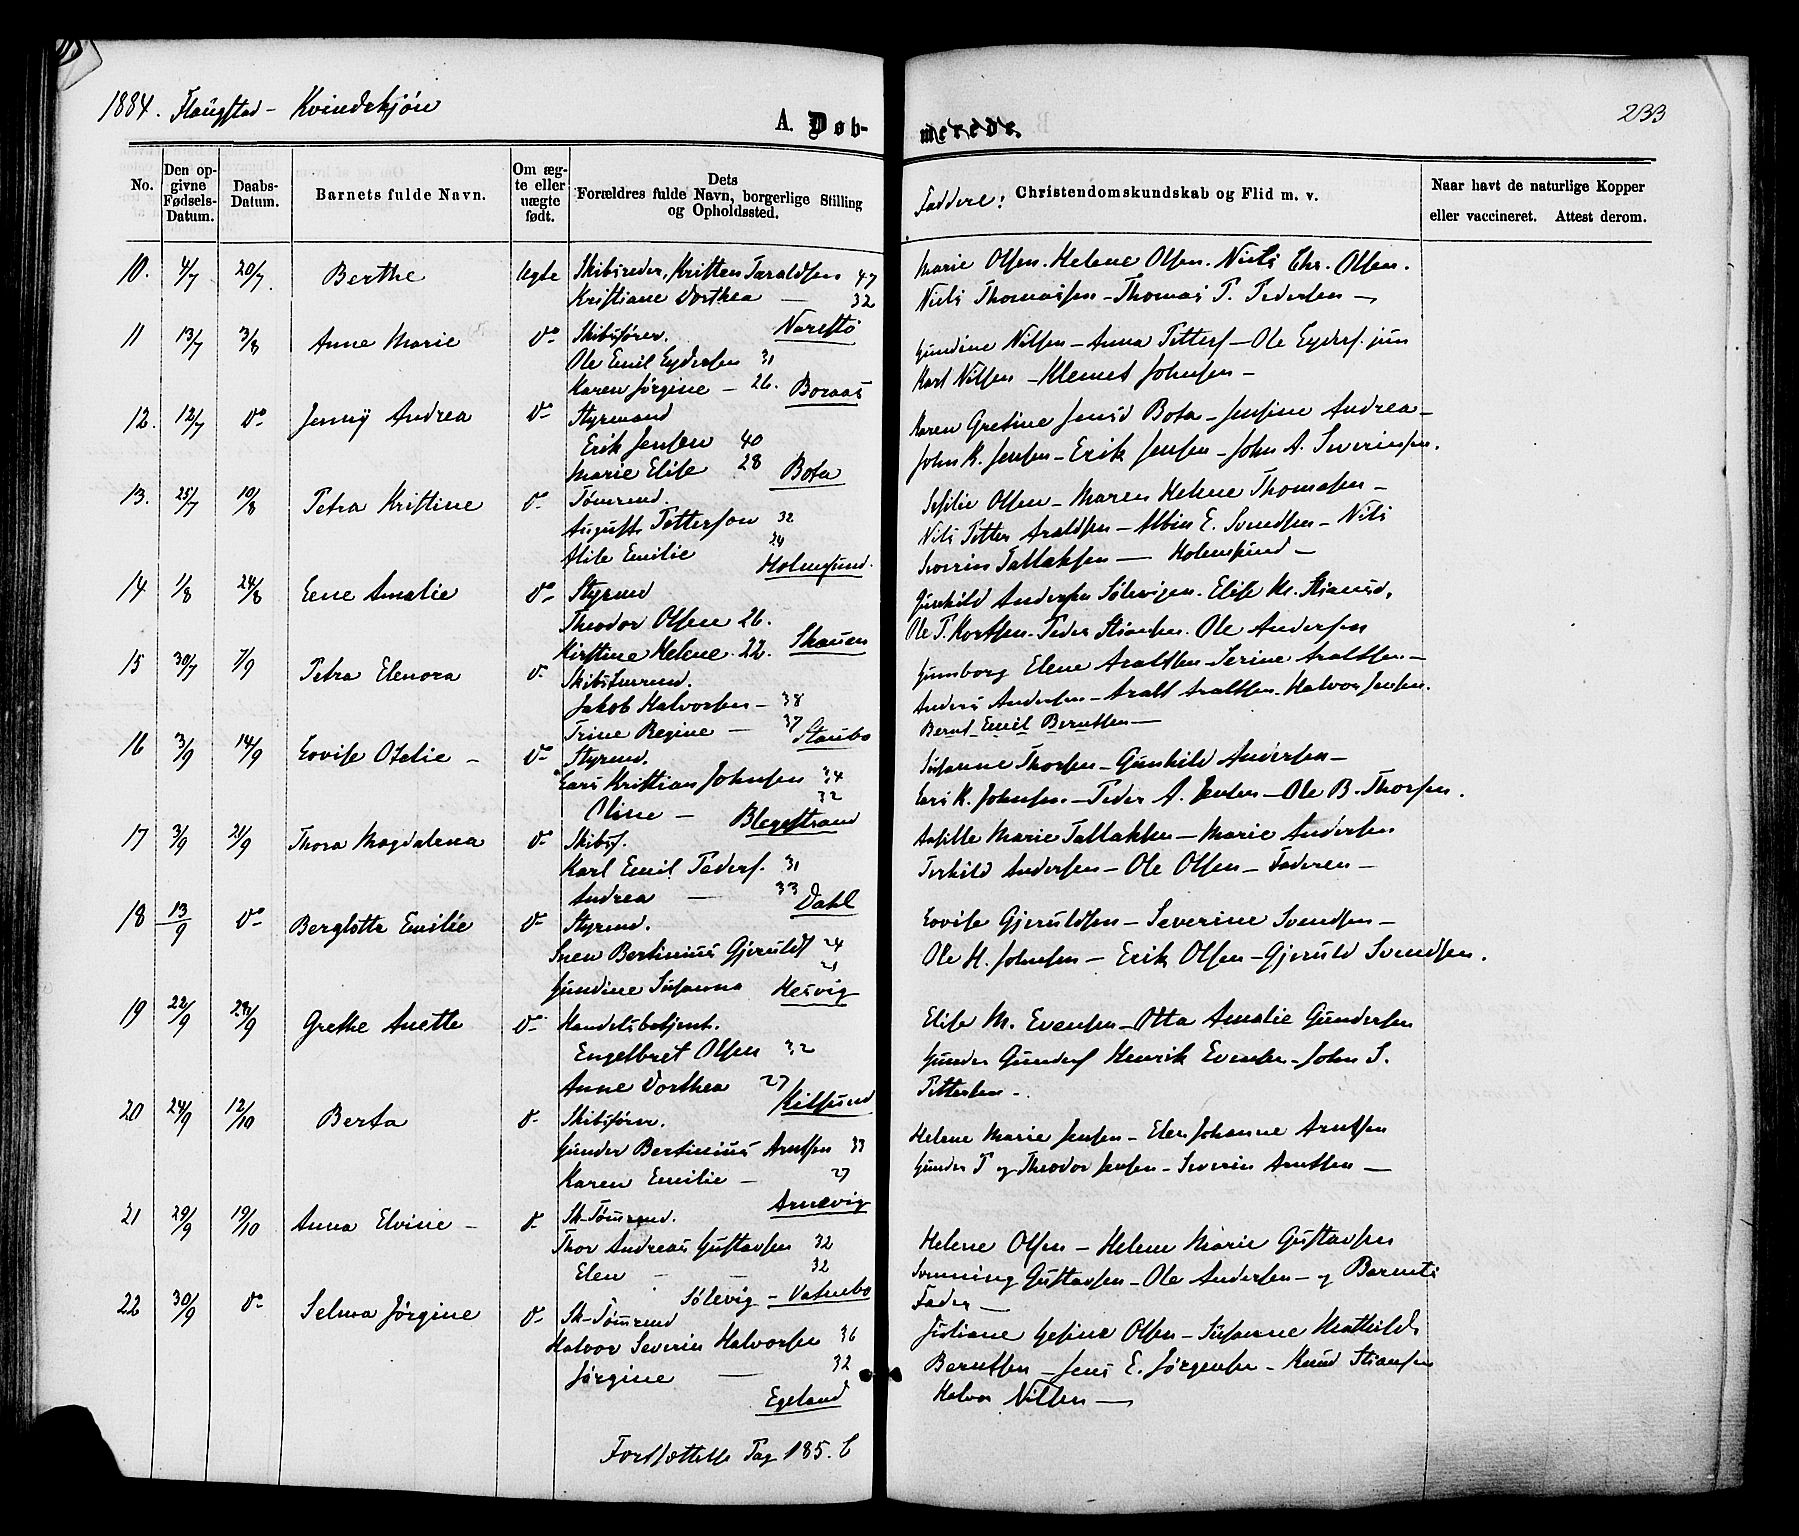 1884. Flaugstad - Kvindekjøn
A. Døb-
merede.
233
No.
Den opgivne Fødsels-Datum.
Daabs-Datum.
Barnets fulde Navn.
Om ægte eller uægte født.
Dets Forældres fulde Navn, borgerlige Stilling og Opholdssted.
Faddere: Christendomskundskab og Flid m. v.
Naar havt de naturlige Kopper eller vaccineret. Attest derom.
10. 4/7 20/7 Berthe ægte Skibsreder, Kristen Taraldsen 47
Kristiane Dorthea — 32
Narestø
Marie Olsen. Helene Olsen. Niels Chr. Olsen.
Niels Thomassen - Thomas P. Pedersen —
11 13/7 3/8 Anne Marie do Skibsfører.
Ole Emil Eydersen 31
Karen Jørgine — 26. Boraas
Gundine Nilsen - Anna Petters - Ole Eyders. jun
Karl Nilsen - Klemet Johnsen -
12. 12/7 do Jenny Andrea do Styrmand
Erik Jensen 40
Marie Elise 28 Bota
Karen Gretine Jensd Bota - Jensine Andrea -
John K. Jensen - Erik Jensen - John A. Severinsen.
13. 25/7 10/8 Petra Kristine do Tømmd.
August Pettersen 32
Elise Emilie 24
Holmesund.
Sesilie Olsen - Maren Helene Thomasen -
Nils Petter Araldsen - Albin E. Svendsen - Nils
Severin Tallaksen — Holmesund -
14 1/8 24/8 Lene Amalie do Styrmd
Theodor Olsen 26.
Kirstine Helene. 22. Skauen
Gunhild Andersen Sølevigen. Elise M. Stiansd,
Ole T. Mortsen. Peder Stiansen. Ole Andersen
15 30/7 7/9 Petra Elenora do Skibstmrmd.
Jakob Halvorsen - 38
Trine Regine — 37 Staubo
Gunborg Elene Araltsen - Serine Araltsen -
Anders Andersen - Aralt Araltsen. Halvor Jensen.
Bernt Emil Berntsen —
16 3/9 14/9 Lovise Otelie - do Styrmd.
Lars Kristian Johnsen 34
Oline — 32
Blegestrand
Susanne Thorsen - Gunhild Andersen -
Lars K. Johnsen - Peder A. Jensen - Ole B. Thorsen.
17 3/9 21/9 Thora Magdalena do Skibsf.
Karl Emil Peders. 31
Andrea — 33 Dahl
Marie Tallaksen - Marie Andersen
Terkild Andersen - Ole Olsen - Faderen -
18 13/9 do Berglotte Emilie do Styrmd.
Sven Bertinius Gjeruldt 24
Gundine Susanna 21 Hesvig
Lovise Gjeruldsen - Severine Svendsen -
Ole H. Johnsen - Erik Olsen - Gjeruld Svendsen.
19 22/9 28/9 Grethe Anette do Handelsbetjent.
Engelbret Olsen 32
Anne Dorthea 27
Kilsund
Elise M. Evensen - Otta Amalie Gundersen
Gunder Gunders Henrik Evensen - John S.
Pettersen -
20 24/9 12/10 Berta do Skibsfører.
Gunder Bertinius Arntsen 33
Karen Emilie - 27
Arnevig
Helene Marie Jensen - Elen Johanne Arntsen
Gunder T og Theodor Jensen - Severin Arntsen -
21 29/9 19/10 Anna Elvine - do Sk-Tømmd.
Thor Andreas Gustavsen 32
Elen — 32
Sølevig - Vatnebo
Helene Olsen - Helene Marie Gustavsen
Svenning Gustavsen - Ole Andersen - og Barnets
Fader —
22 30/9 do Selma Jørgine do Sk-Tømmd
Halvor Severin Halvorsen 36
Jørgine — 32
Egeland
Juliane Gesine Olsen - Susanne Mathilde
Berntsen - Jens E. Jørgensen - Knud Stiansen
Halvor Nilsen —
Fortsættelse Pag 185. b